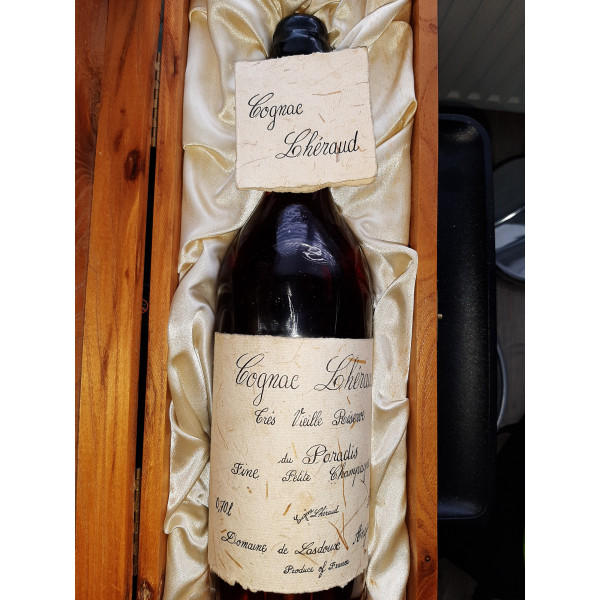 Cognac
Lhéraud
Cognac Lhéraud
Très Vieille Réserve
du Paradis
Fine Petite Champagne
0,70l
Lhéraud
Domaine de Lasdoux
Produce of France